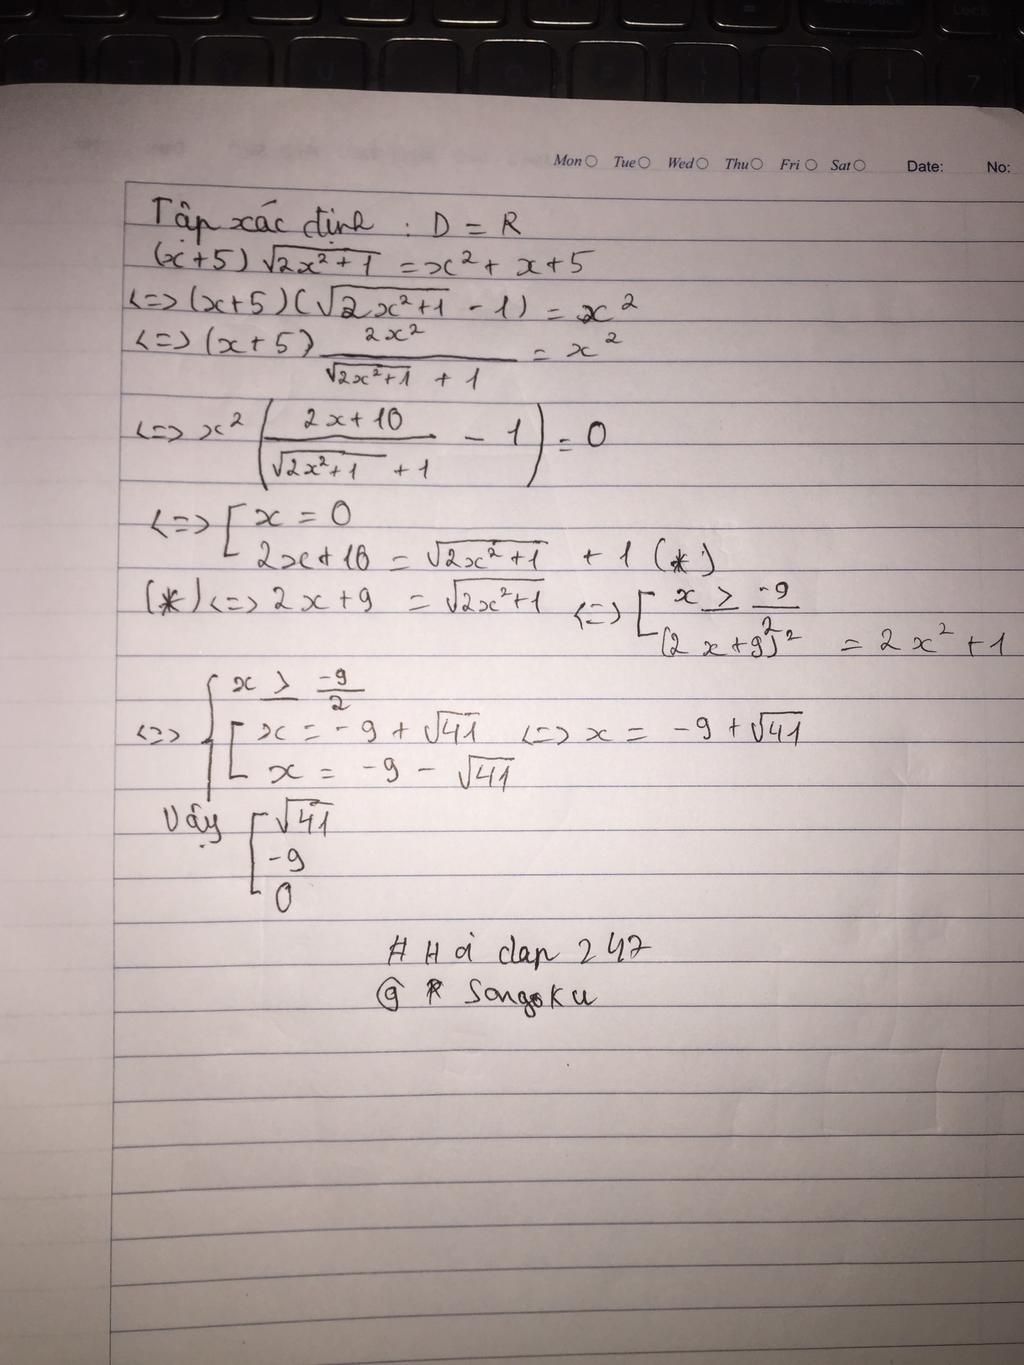 Mon Tue Wed Thu Fri Sat Date: No:
Tập xác định : D = R
(x+5) √(2x²+1) = x² + x+5
<=> (x+5)(√(2x²+1) - 1) = x²
<=> (x+5) 2x²/(√(2x²+1) + 1) = x²
<=> x² ((2x+10)/(√(2x²+1) + 1) - 1) = 0
<=> [ x = 0
2x+10 = √(2x²+1) + 1 (*)
(*) <=> 2x+9 = √(2x²+1) <=> [ x ≥ -9/2
(2x+9)² = 2x²+1
<=> { x ≥ -9/2
[ x = -9 + √41 <=> x = -9 + √41
x = -9 - √41
Vậy [ √41
-9
0
# H ỏi dap 247
@ R Songoku